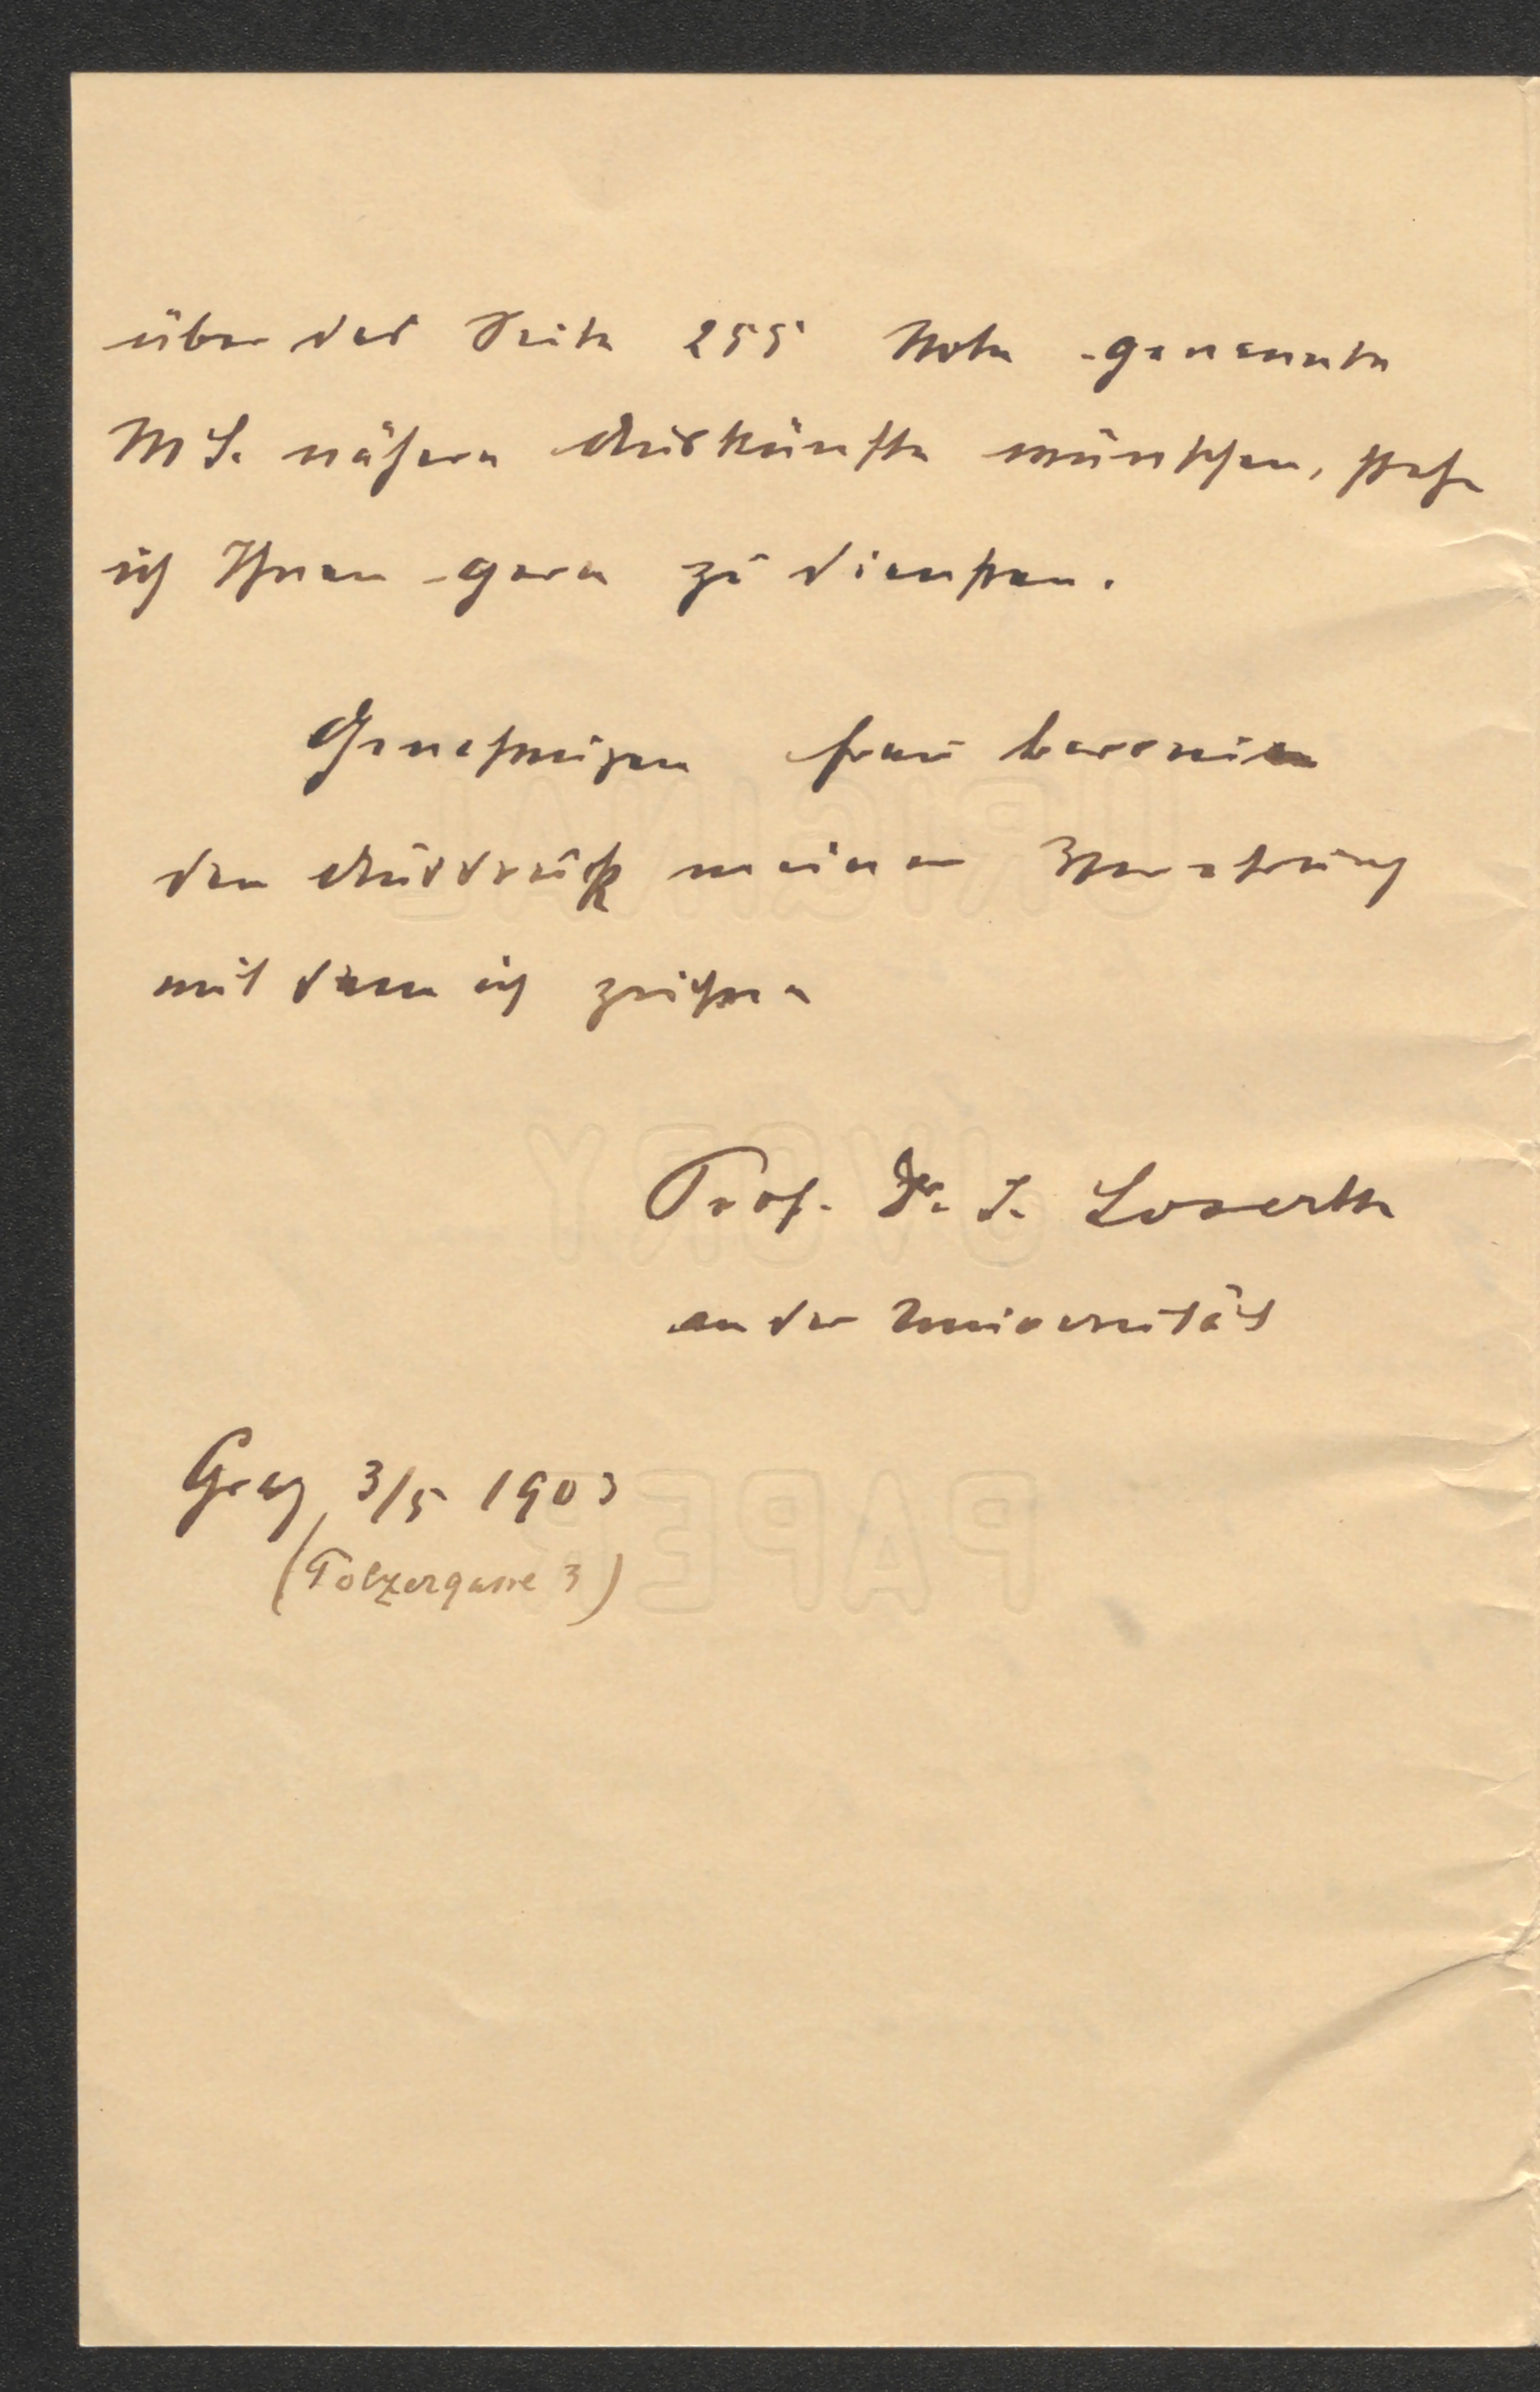 über das Seite 255 Note genannte
MS. nähere Auskünfte wünschen, stehe
ich Ihnen gern zu diensten.
Genehmigen frau baronin
den Ausdruck meiner Verehrung
mit dem ich zeichne
Prof. Dr. J. Loserth
an der Universität
Graz, 3/5 1903
(Polzergasse 3)
ORIGINAL
IVORY
PAPER